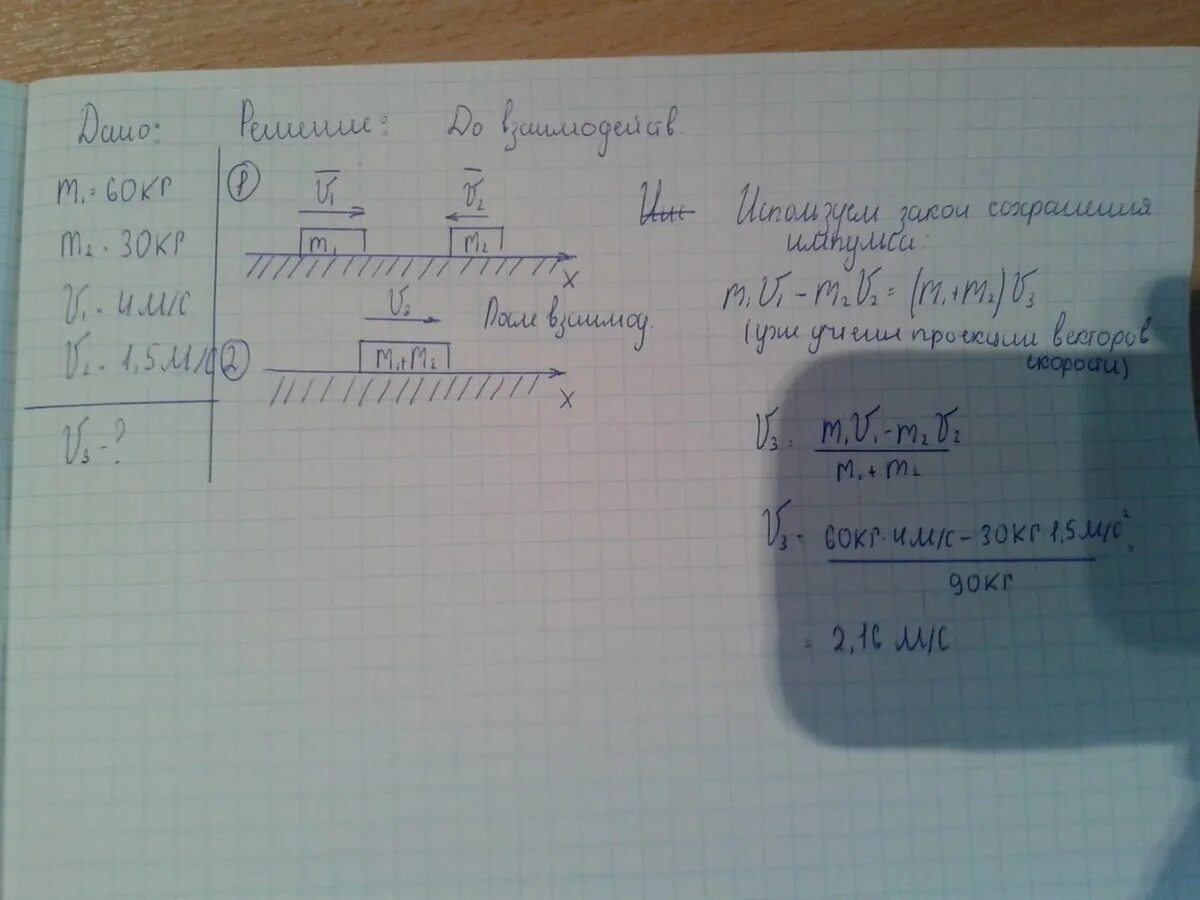 Дано:
m₁ = 60 кг
m₂ = 30 кг
V₁ = 4 м/с
V₂ = 1,5 м/с
V₃ - ?
Решение: До взаимодейств.
1
V̅₁ V̅₂
m₁ m₂
x
V₃ После взаимод.
2
m₁+m₂
x
Используем закон сохранения
импульса:
m₁V₁ - m₂V₂ = (m₁+m₂)V₃
(уже учтены проекции векторов
скорости)
V₃ = m₁V₁ - m₂V₂
m₁ + m₂
V₃ = 60кг·4м/с - 30кг·1,5м/с =
90кг
= 2,16 м/с